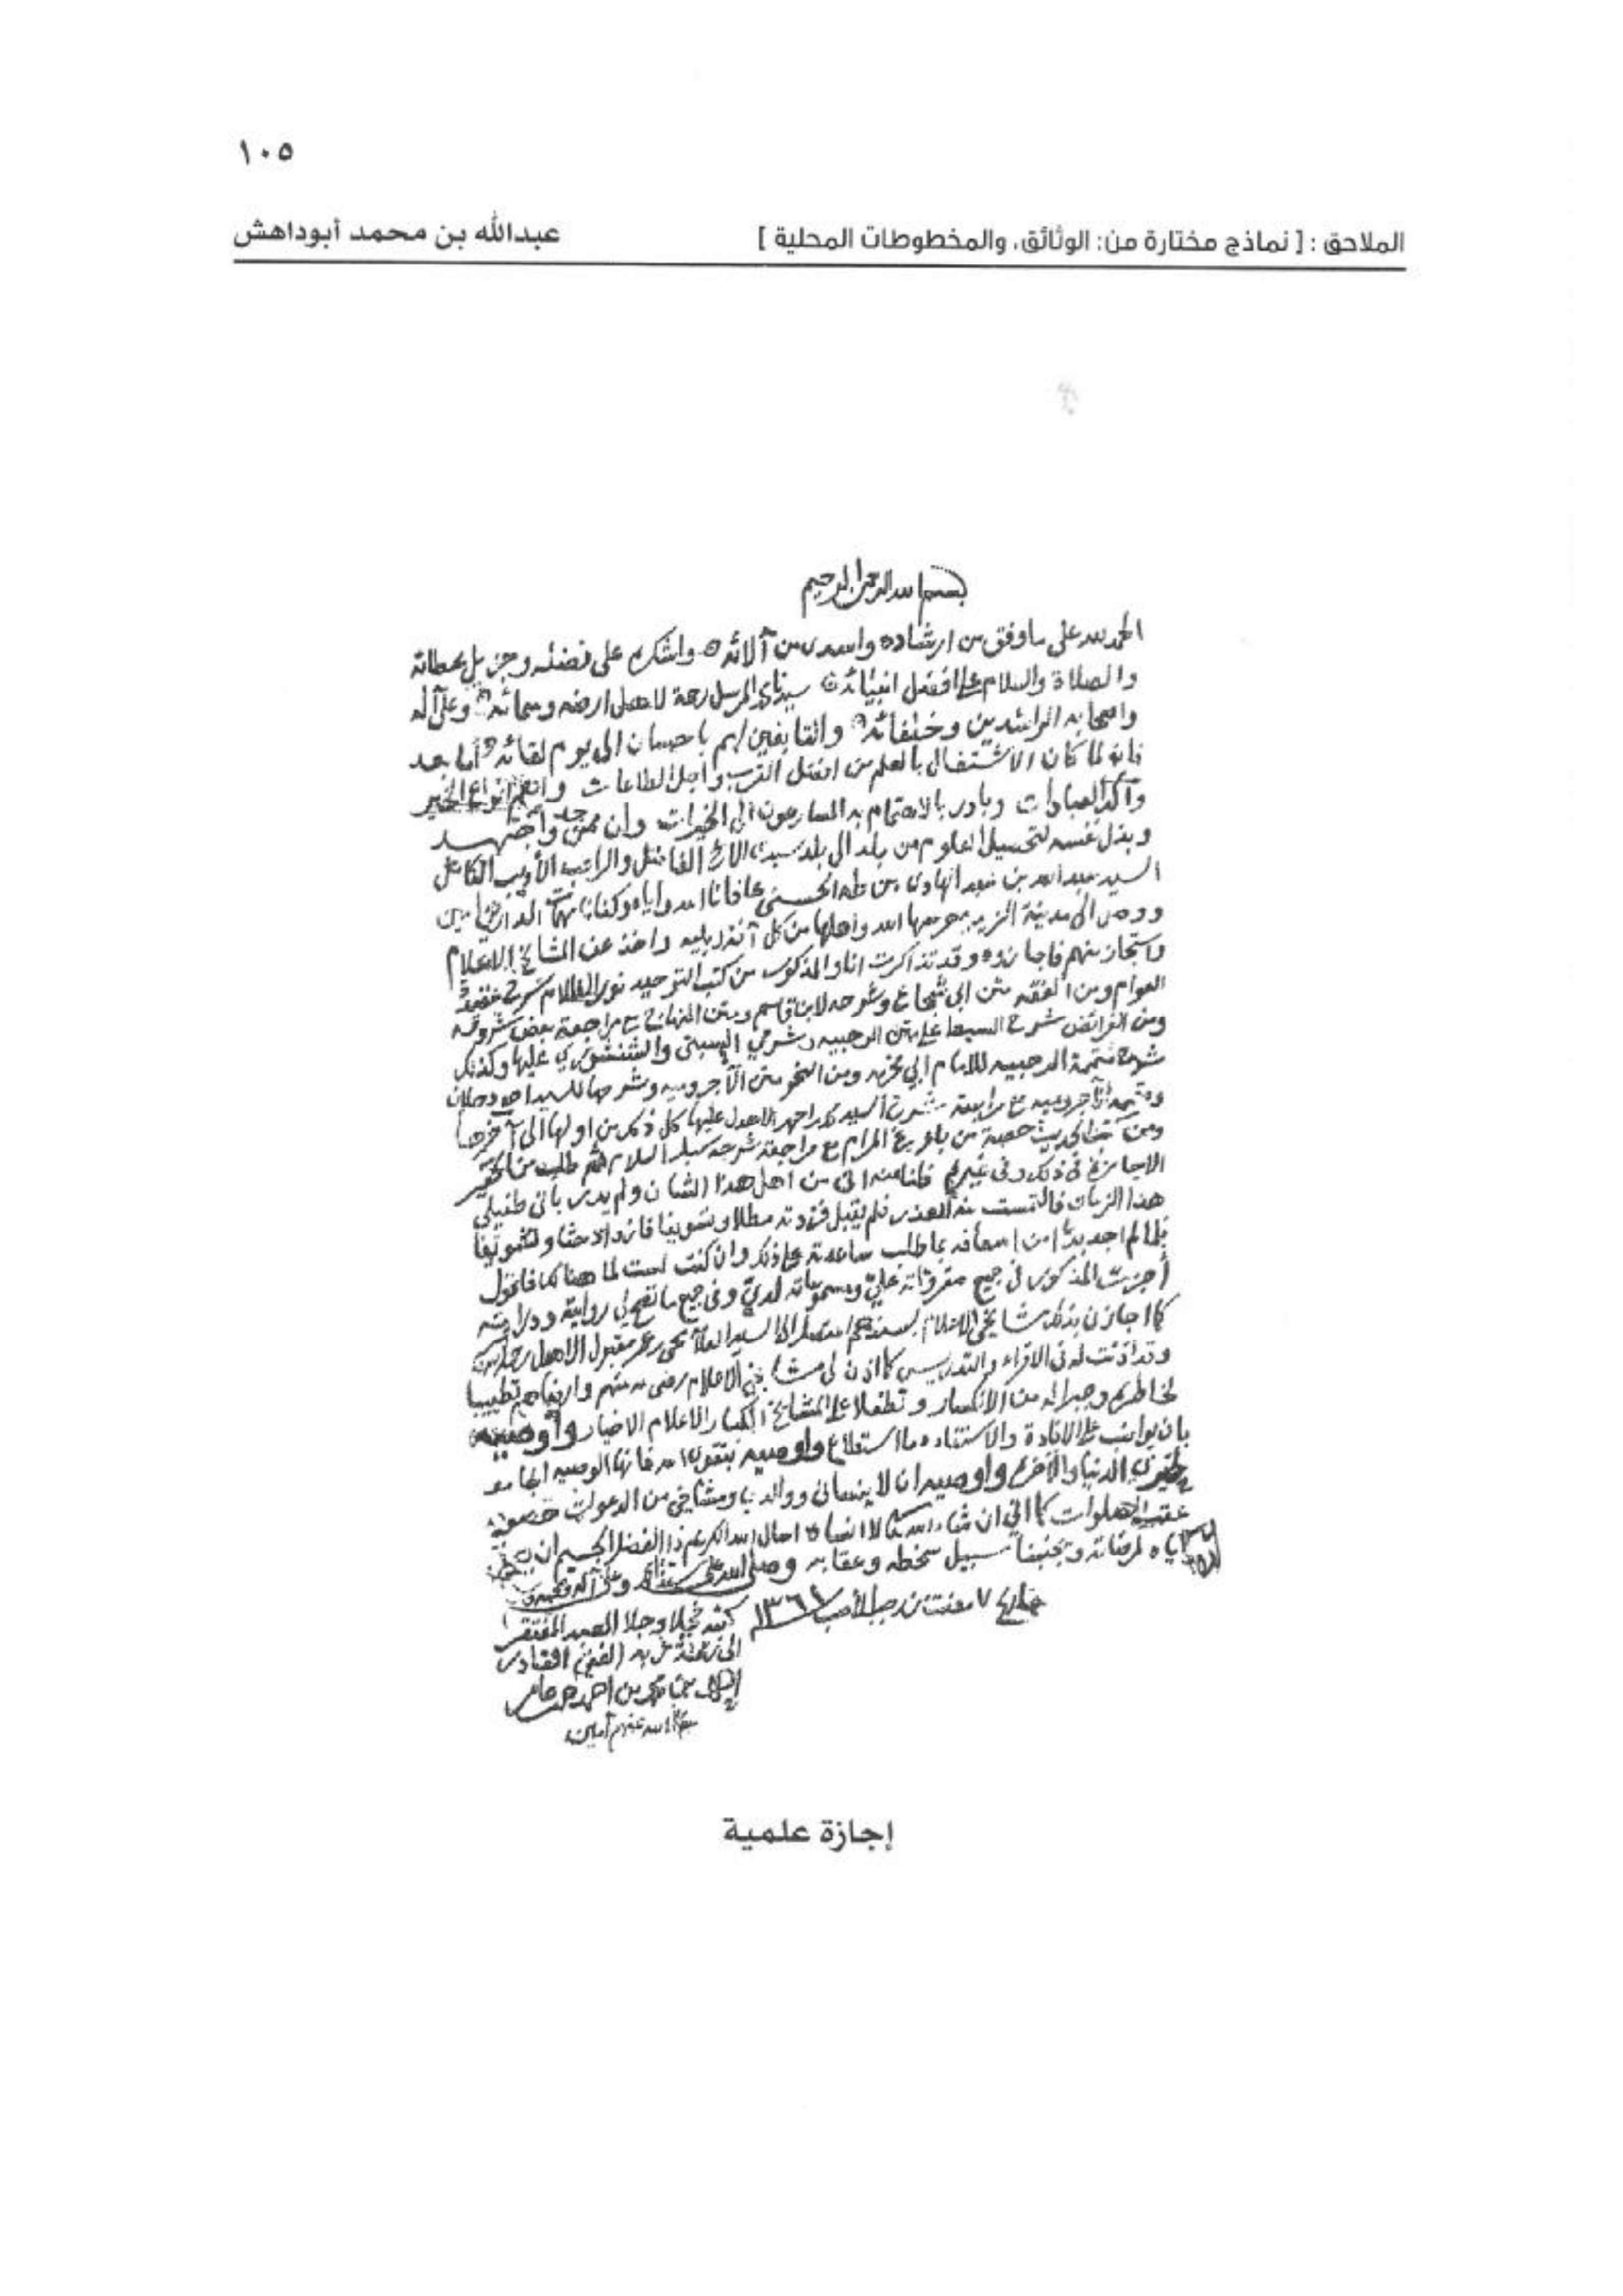 ١٠٥
الملاحق : [ نماذج مختارة من: الوثائق، والمخطوطات المحلية ]
عبدالله بن محمد أبوداهش
بسم الله الرحمن الرحيم
الحمد لله على ما وفق من ارشاده واسدى من آلائه واشكره على فضله وجزيل عطائه
والصلاة والسلام على افضل انبيائه سيدنا محمد المرسل رحمة لاهل ارضه وسمائه وعلى آله
واصحابه الراشدين وخلفائه والتابعين لهم باحسان الى يوم لقائه أما بعد
فانه لما كان الاشتغال بالعلم من افضل القرب واجل الطاعات وانواع الخير
وآكد العبادات وبادر بالاهتمام به المسارعون الى الخيرات وان ممن جد واجتهد
وبذل نفسه لتحصيل العلوم من بلد الى بلد الفاضل والراغب الأديب الكامل
السيد عبد الله بن عبد الهادي بن طه الحسني عافانا الله واياه وكفانا مهمات الدارين آمين
ووصل الى مدينة حرسها الله واهلها من كل آفة وبليه واخذ عن المشائخ الاعلام
واستجاز منهم فاجازوه وقد تذاكرت انا والمذكور من كتب التوحيد نور الظلام شرح عقيدة
العوام ومن الفقه متن ابي شجاع وشرحه لابن قاسم ومتن المنهاج مع مراجعة بعض شروحه
ومن الفرائض شرح السبط على متن الرحبيه وشرحي والشنشوري عليها وكذلك
شرح تتمة الرحبيه للامام ومن النحو متن الآجروميه وشرحها للسيد احمد دحلان
ومتممة الآجروميه مع مراجعة شرح السيد محمد احمد الاهدل عليها كل ذلك من اولها الى آخرها
ومن الحديث حصة من بلوغ المرام مع مراجعة شرحه سبل السلام ثم طلب من الحقير
الاجازة في ذلك وفي غيره ظنا منه اني من اهل هذا الشان ولم يدر باني طفيلي
هذا الزمان فالتمست منه العذر فلم يقبل فزدته مطلا وتسويفا فازداد حثا وتشويقا
فلما لم اجد بدا من اسعافه بما طلب ساعدته على ذلك وان كنت لست لما هنالك فاقول
أجزت المذكور في جميع مقروآته علي ومسموعاته لدي وفي جميع ما تصح لي روايته ودرايته
كما اجازني بذلك مشائخي الاعلام بسندهم السيد العلامة محمد مقبول الاهدل رحمه
وقد اذنت له في الاقراء والتدريس كما اذن لي مشائخي الاعلام رضي الله عنهم وارضاهم تطييبا
لخاطره وجبرا له من الانكسار وتطفلا على المشائخ الكبار الاعلام الاخيار وأوصيه
بان يواظب على الافادة والاستفاده ما استطاع واوصيه بتقوى الله فانها الوصيه الجامعه
لخيري الدنيا والآخره واوصيه ان لا ينساني ووالدي ومشائخي من الدعوات خصوصا
عقب الصلوات كما اني ان شاء الله لا انساه اسال الله الكريم ذا الفضل الجسيم ان
واياه لمرضاته ويجنبنا سبيل سخطه وعقابه وصلى الله على وعلى آله
بتاريخ ٧ مضت من رجب الأصب ١٣٦١
كتبه خجلا وجلا العبد المفتقر
الى بن احمد عامر
عفا الله عنهم آمين
إجازة علمية